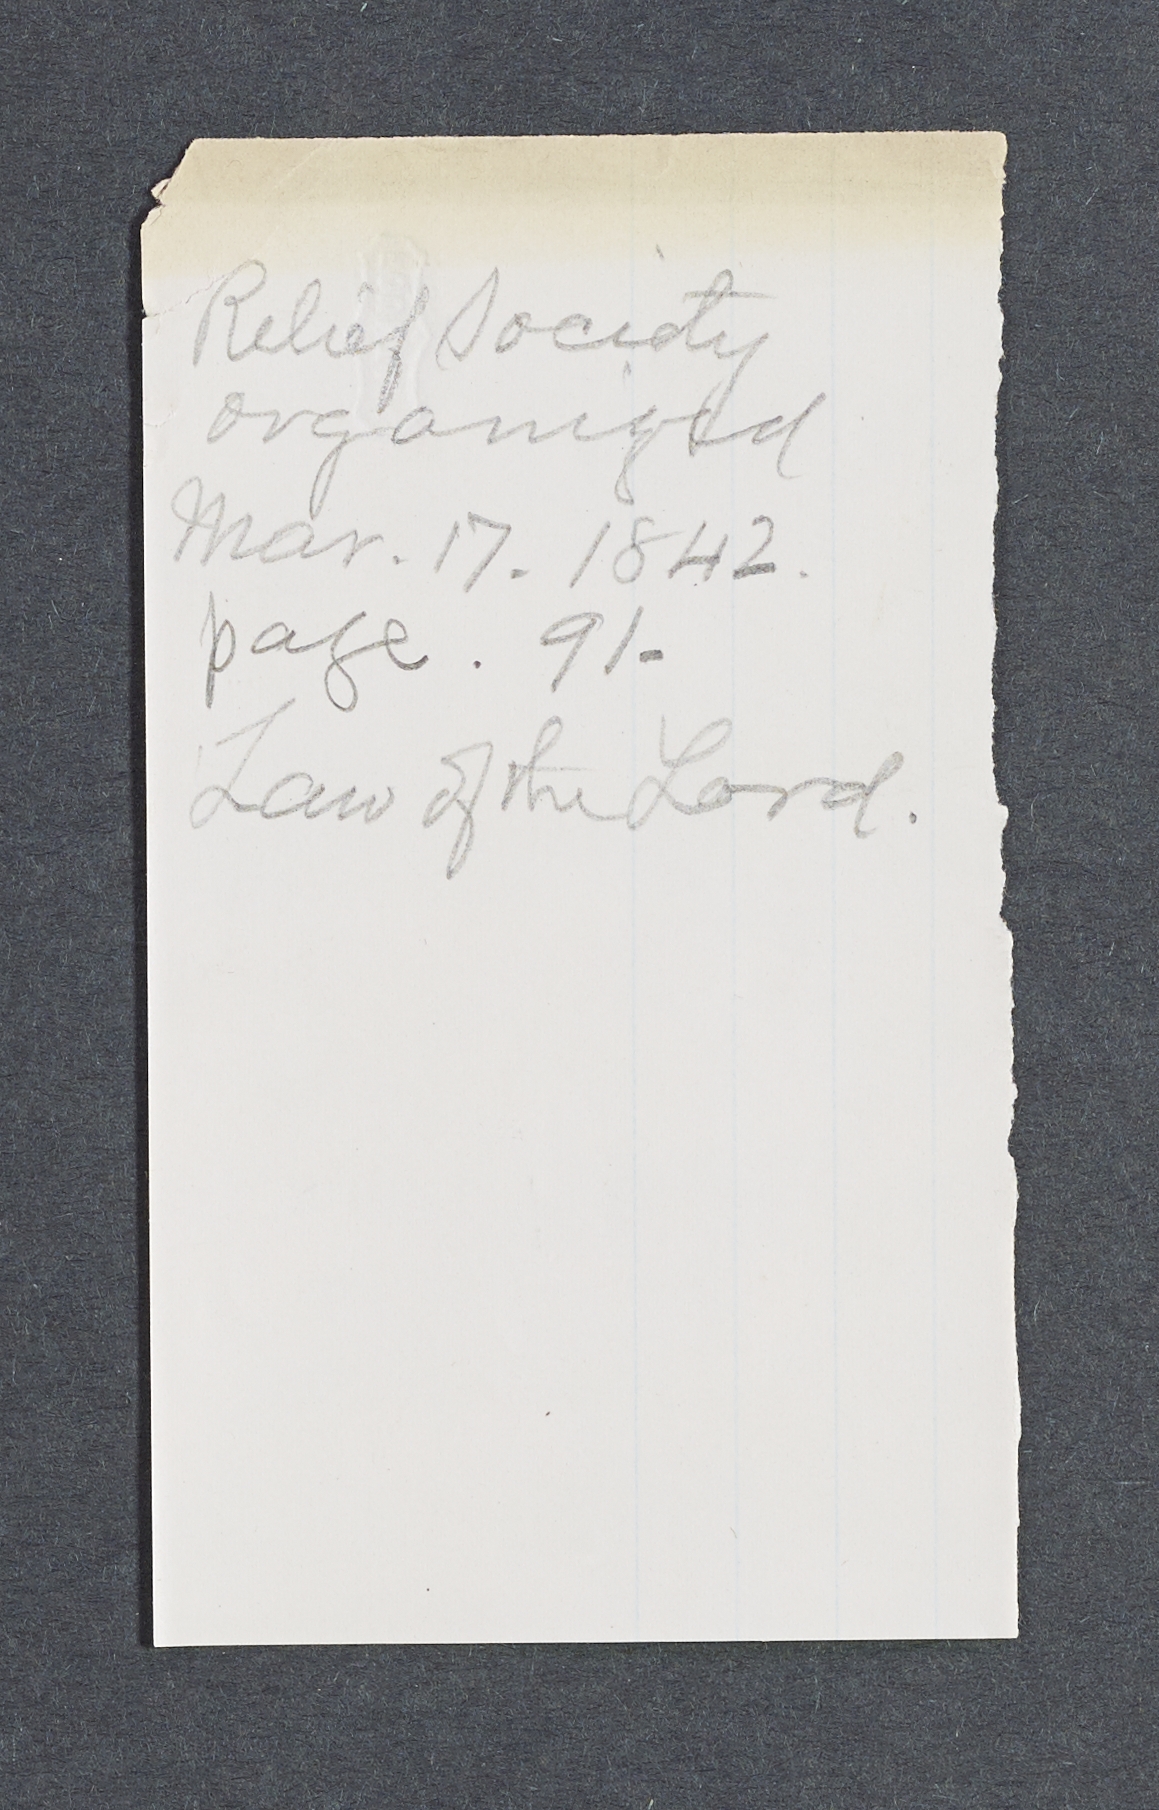 Relief Society
organized
Mar. 17. 1842.
page. 91-
Law of the Lord.